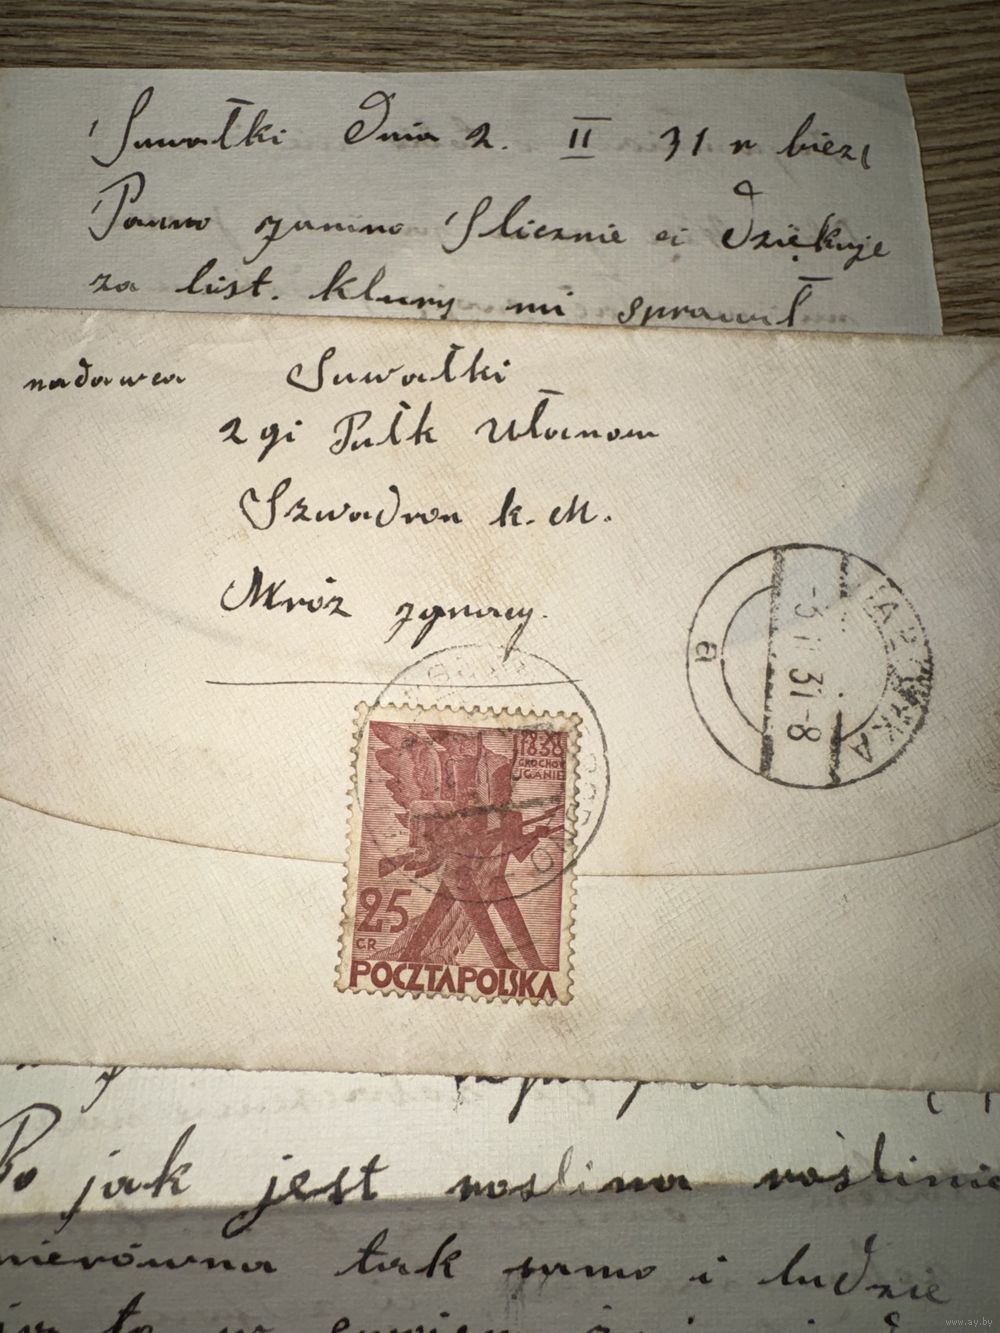 Suwałki Dnia 2. II 31 r bież
Panno Janino Slicznie ci Dziękuje
za list. klury mi sprawił
nadawca Suwałki
2gi Pułk Ułanow
Szwadron k. M.
Mróz Jgnacy.
a -3 II 31-8
1830
GROCHÓW
IGANIE
25
GR
POCZTA POLSKA
Bo jak jest roslina roslinie
nierówna tak samo i ludzie
www.ay.by